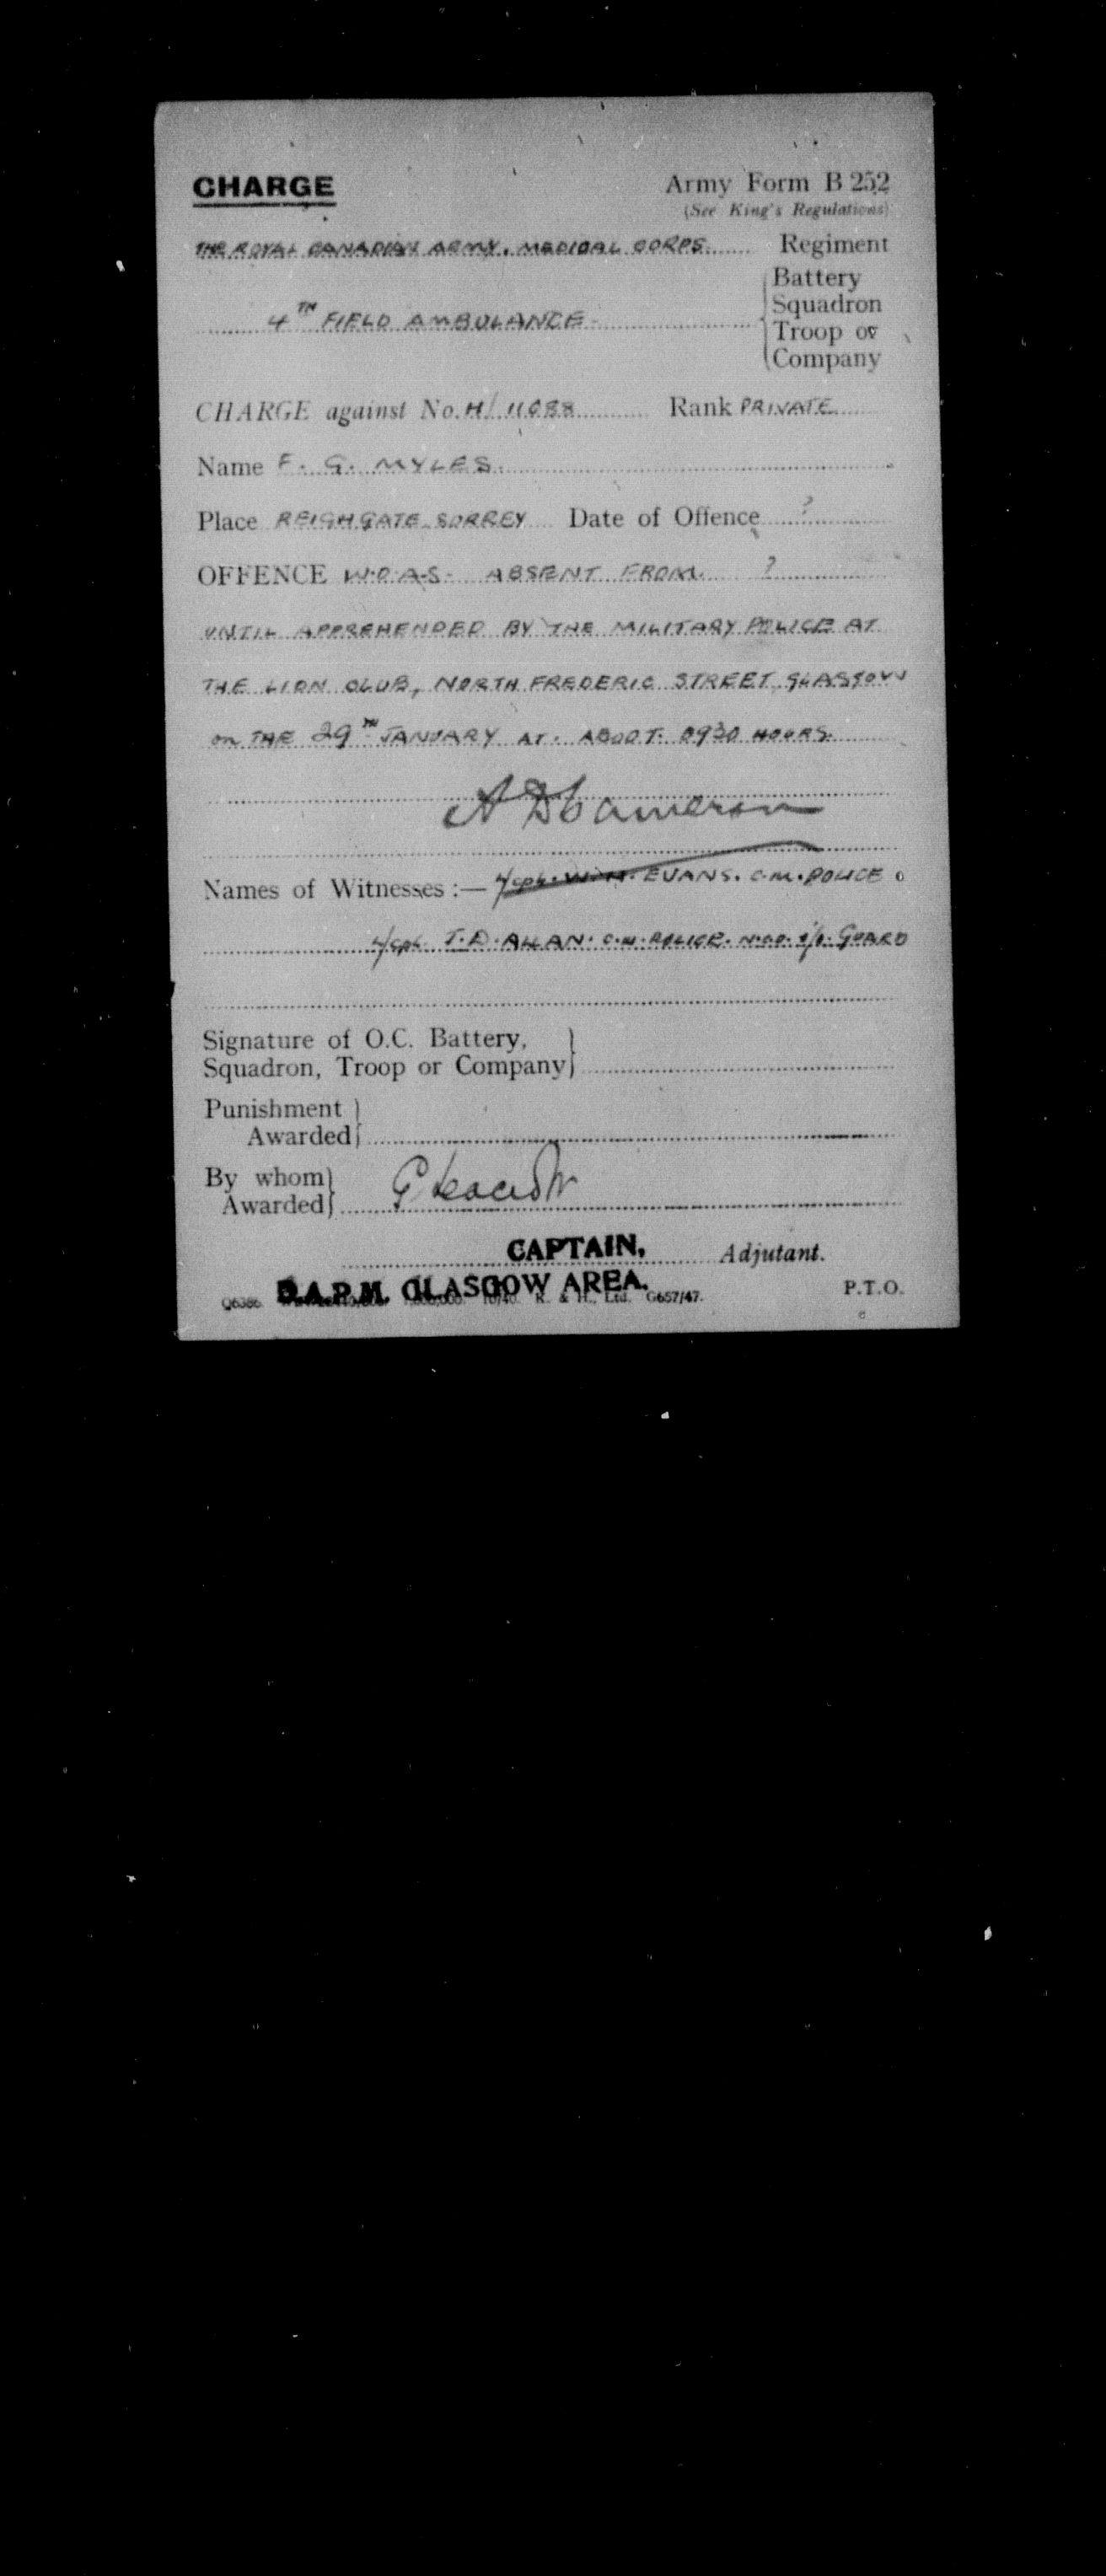 CHARGE
Army Form B 252
(See King's Regulations)
THE ROYAL CANADIAN ARMY. MEDICAL CORPS. Regiment
Battery
Squadron
4TH FIELD AMBULANCE
Troop or
Company
CHARGE against No. H/11088 Rank PRIVATE
Name F. G. MYLES.
Place REIGHGATE SURREY Date of Offence ?
OFFENCE W.O.A.S. ABSENT FROM ?
UNTIL APPREHENDED BY THE MILITARY POLICE AT
THE LION CLUB, NORTH FREDERIC STREET, GLASGOW
on THE 29TH JANUARY AT. ABOUT. 0930 HOURS.
A D Cameron
Names of Witnesses :— L/cpl. W.H. EVANS. C.M. POLICE.
L/cpl. T.D. ALLAN. C.M. POLICE. N.C.O. i/c. GUARD
Signature of O.C. Battery,
Squadron, Troop or Company
Punishment
Awarded
By whom
Awarded
CAPTAIN, Adjutant.
D.A.P.M. GLASGOW AREA.
Q6386 10/40. K. & H., Ltd. G657/47.
P.T.O.